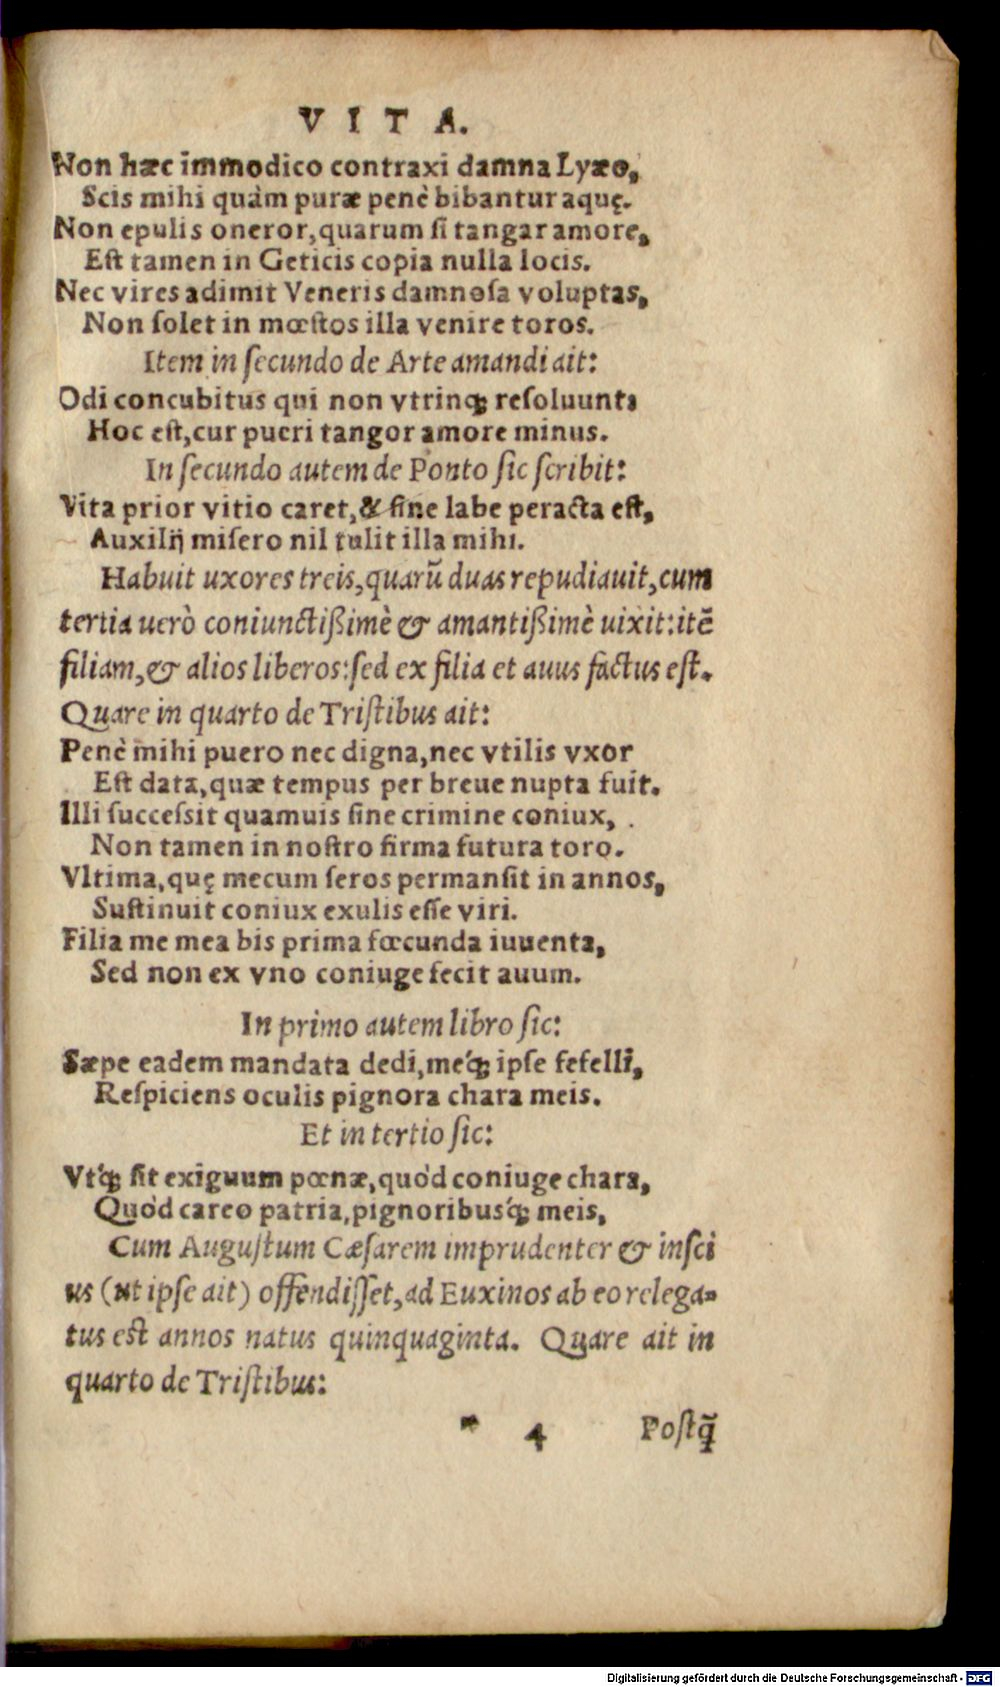 VITA.
Non hæc immodico contraxi damna Lyæo,
Scis mihi quàm puræ penè bibantur aquę.
Non epulis oneror, quarum ſi tangar amore,
Eſt tamen in Geticis copia nulla locis.
Nec vires adimit Veneris damnoſa voluptas,
Non ſolet in mœſtos illa venire toros.
Item in ſecundo de Arte amandi ait:
Odi concubitus qui non vtrinq́; reſoluunt:
Hoc eſt, cur pueri tangor amore minus.
In ſecundo autem de Ponto ſic ſcribit:
Vita prior vitio caret, & ſine labe peracta eſt,
Auxilij miſero nil tulit illa mihi.
Habuit uxores treis, quarū duas repudiauit, cum
tertia uerò coniunctißimè & amantißimè uixit: itē
filiam, & alios liberos: ſed ex filia et auus factus eſt.
Quare in quarto de Triſtibus ait:
Penè mihi puero nec digna, nec vtilis vxor
Eſt data, quæ tempus per breue nupta fuit.
Illi ſucceſsit quamuis ſine crimine coniux,
Non tamen in noſtro firma futura toro.
Vltima, quę mecum ſeros permanſit in annos,
Suſtinuit coniux exulis eſſe viri.
Filia me mea bis prima fœcunda iuuenta,
Sed non ex vno coniuge fecit auum.
In primo autem libro ſic:
Sæpe eadem mandata dedi, meq́; ipſe fefelli,
Reſpiciens oculis pignora chara meis.
Et in tertio ſic:
Vtq́; ſit exiguum pœnæ, quòd coniuge chara,
Quòd careo patria, pignoribusq́; meis,
Cum Auguſtum Cæſarem imprudenter & inſci
us (ut ipſe ait) offendiſſet, ad Euxinos ab eo relega-
tus eſt annos natus quinquaginta. Quare ait in
quarto de Triſtibus:
* 4 Poſtq̃
Digitalisierung gefördert durch die Deutsche Forschungsgemeinschaft - DFG